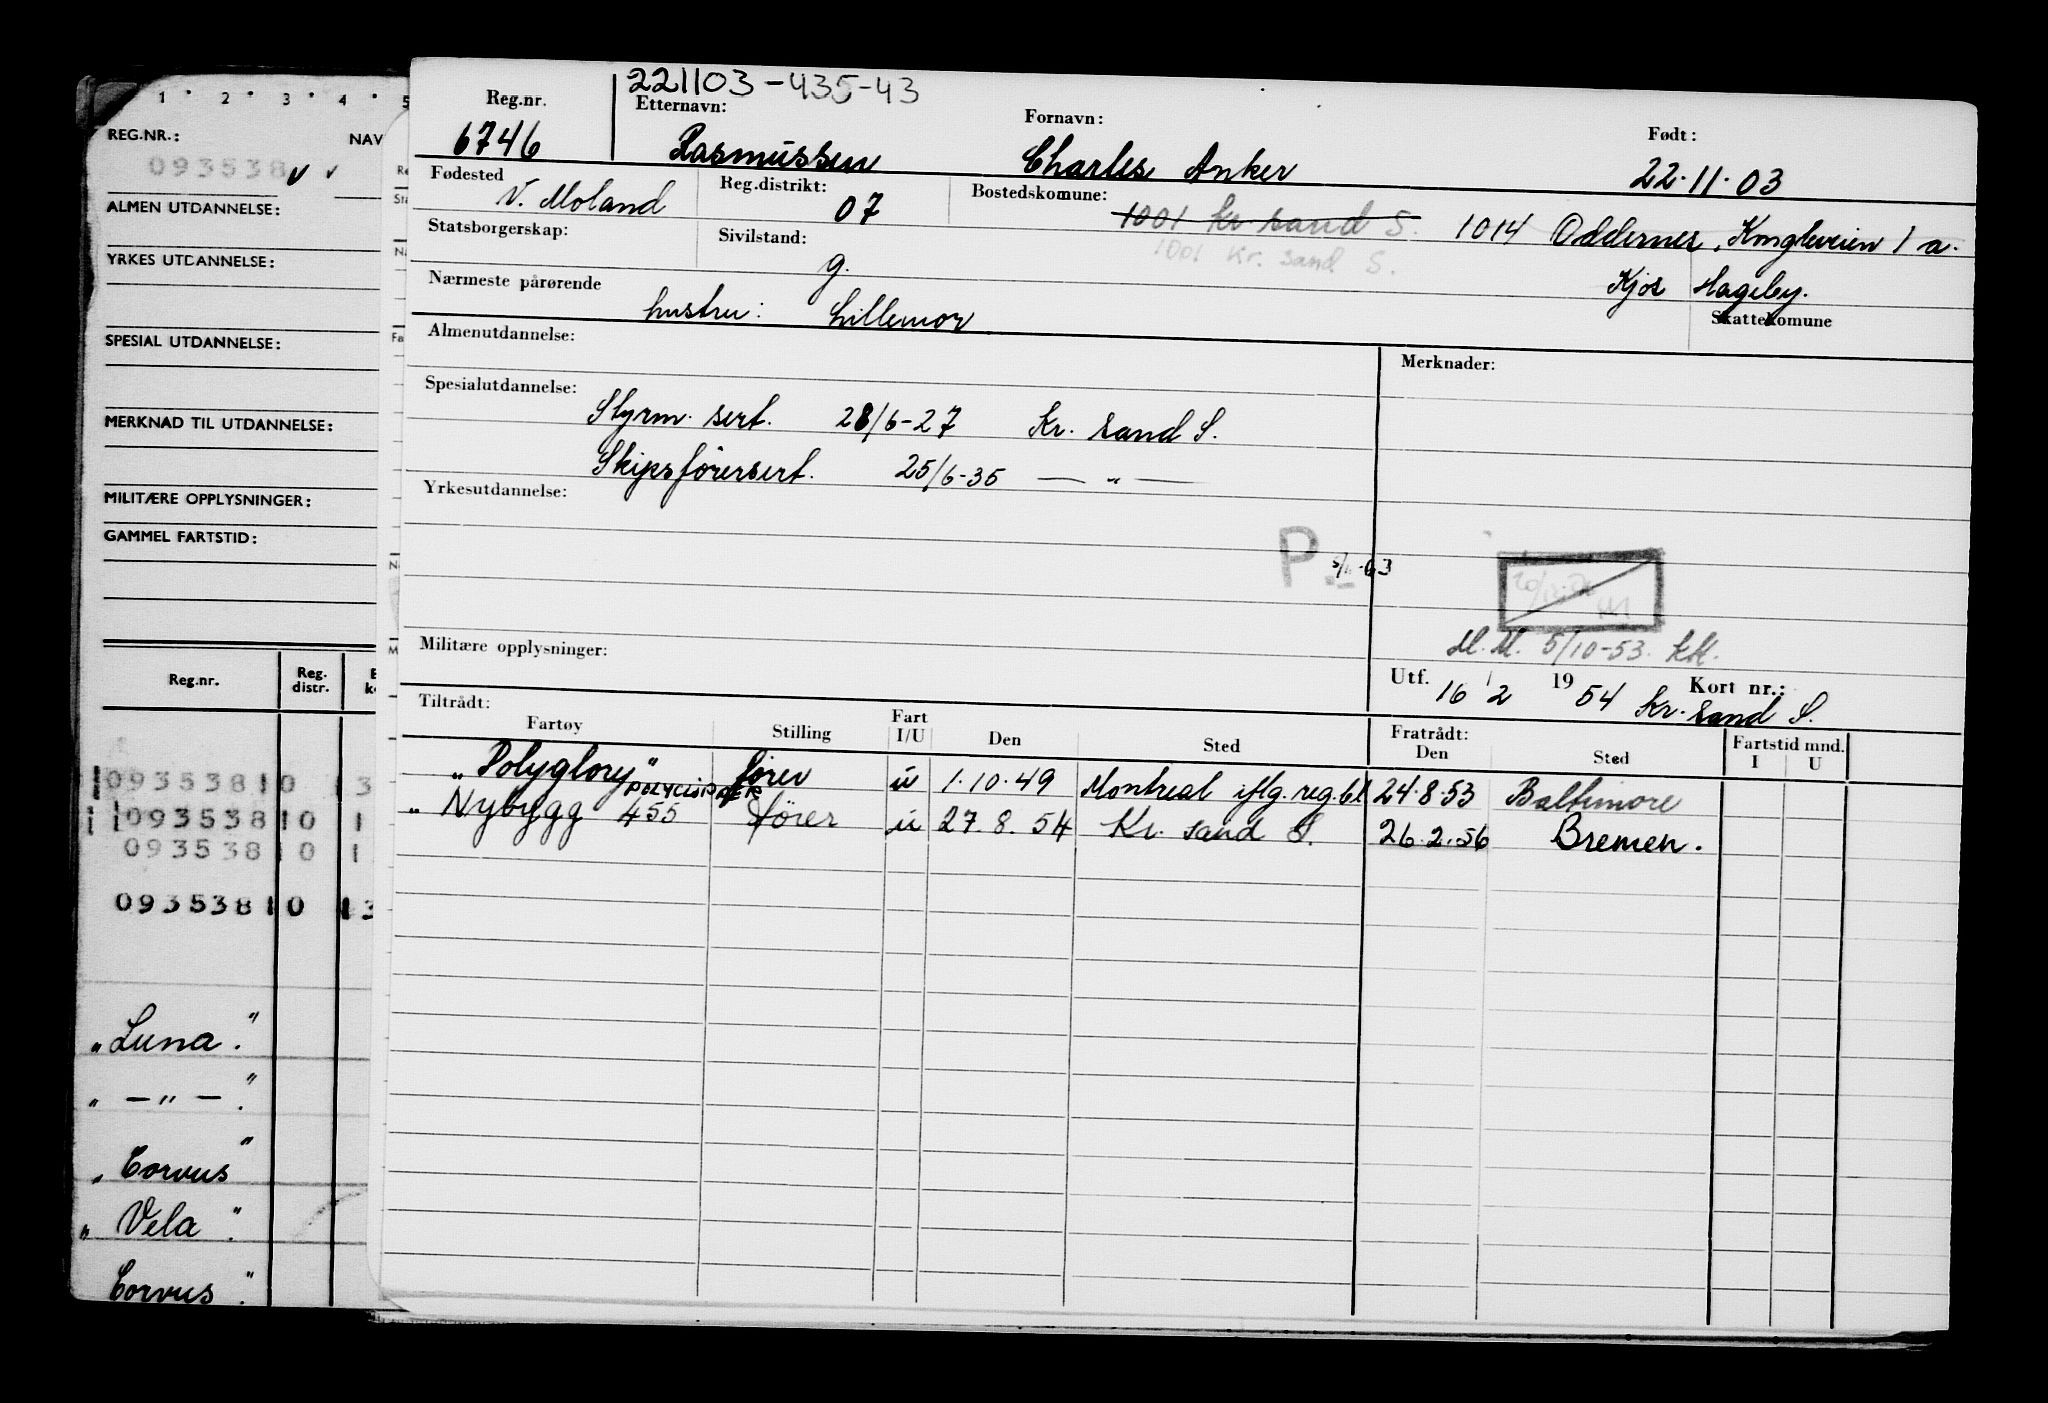 1 · 2 · 3 · 4 · 5
REG.NR.: NAV
093538
ALMEN UTDANNELSE:
YRKES UTDANNELSE:
SPESIAL UTDANNELSE:
MERKNAD TIL UTDANNELSE:
MILITÆRE OPPLYSNINGER:
GAMMEL FARTSTID:
Reg.nr. Reg. distr.
093538 10 3
093538 10 1
093538 10 1
093538 10 3
"Luna".
" — " — ".
"Corvus"
"Vela".
Corvus".
221103-435-43
Reg.nr. Etternavn: Fornavn: Født:
6746 Rasmussen Charles Anker 22.11.03
Fødested Reg.distrikt: Bostedskomune:
V. Moland 07 1001 Kr. sand S. 1014 Oddernes, Kongleveien 1 a.
Statsborgerskap: Sivilstand: 1001 Kr. sand S.
g. Kjos Hageby.
Nærmeste pårørende
hustru: Lillemor Skattekomune
Almenutdannelse: Merknader:
Spesialutdannelse:
Styrm. sert. 28/6-27 Kr. sand S.
Skipsførersert. 25/6-35 — " —
Yrkesutdannelse:
P.
M.M. 5/10-53. KK.
Militære opplysninger:
Utf. 16/2 1954 Kort nr.:
Kr. sand S.
Tiltrådt: Fratrådt:
Fartøy Stilling Fart I/U Den Sted Den Sted Fartstid mnd. I U
"Polyglory" fører u 1.10.49 Montreal iflg. reg.bl 24.8.53 Baltimore
" Nybygg 455 fører u 27.8.54 Kr. sand S. 26.2.56 Bremen.